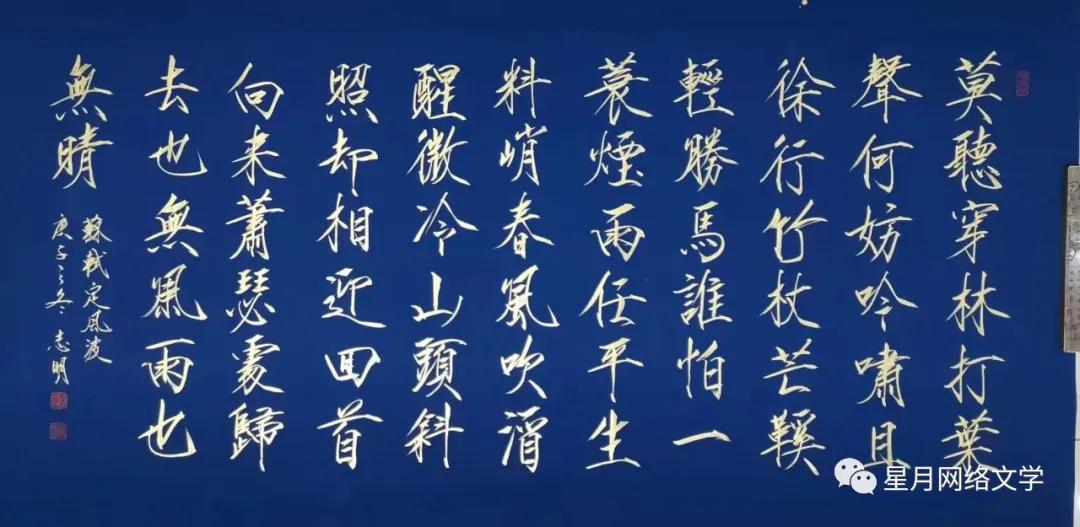 莫聽穿林打葉
聲何妨吟嘯且
徐行竹杖芒鞵
輕勝馬誰怕一
蓑煙雨任平生
料峭春風吹酒
醒微冷山頭斜
照却相迎回首
向来蕭瑟處歸
去也無風雨也
無晴
蘇軾定風波
庚子之冬志明
星月网络文学